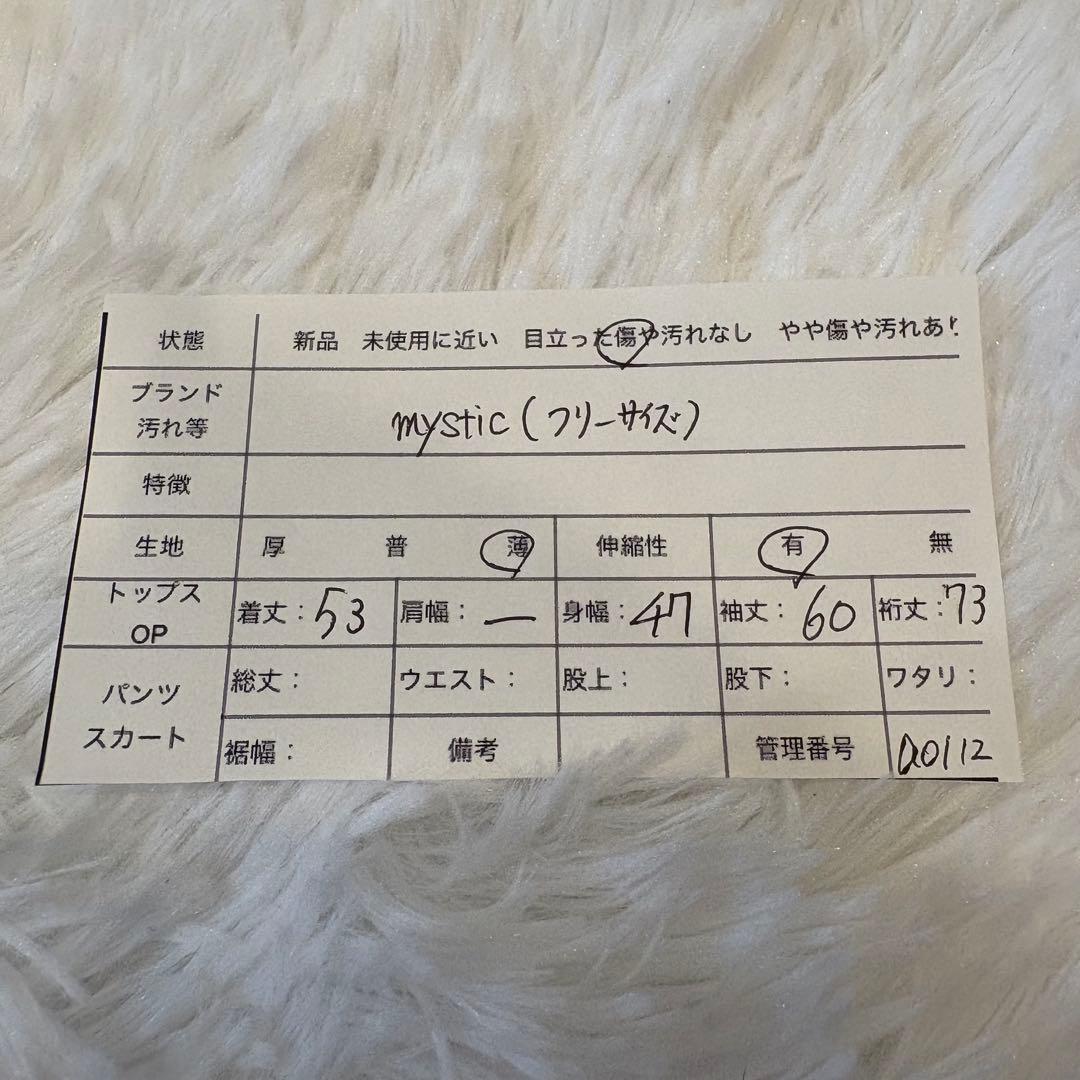 状態 新品 未使用に近い 目立った傷や汚れなし やや傷や汚れあり
ブランド
汚れ等 mystic(フリーサイズ)
特徴
生地 厚 普 薄 伸縮性 有 無
トップス
OP 着丈:53 肩幅:— 身幅:47 袖丈:60 裄丈:73
パンツ
スカート
総丈: ウエスト: 股上: 股下: ワタリ:
裾幅: 備考 管理番号